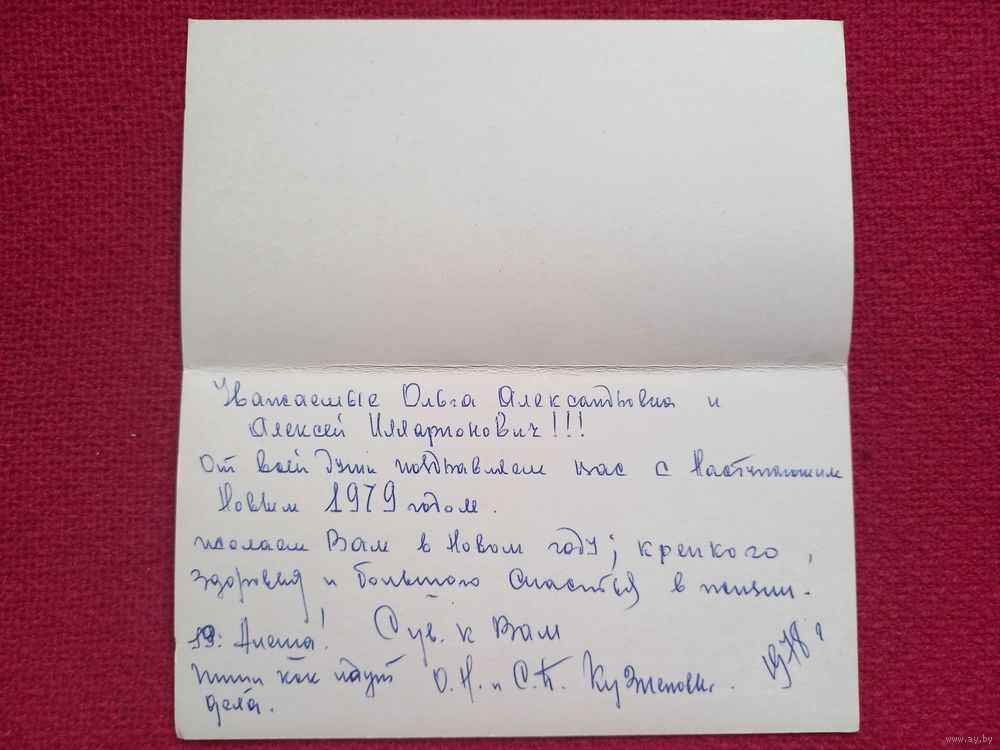 Уважаемые Ольга Александровна и
Алексей Илларионович!!!
От всей души поздравляем вас с Наступающим
Новым 1979 годом.
желаем Вам в Новом году; крепкого,
здоровья и большого счастья в жизни.
С ув. к Вам
О.Н. и С.П.
Алеша!
пиши как идут
дела.
1978 г
www.ay.by